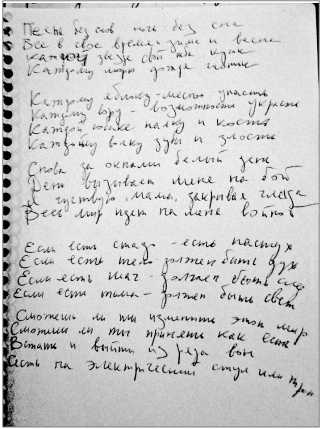 Песня без слов ночь без сна
Все в свое время зима и весна
Каждой звезде свой неба кусок
Каждому морю дождя глоток
Каждому яблоку - место упасть
Каждому вору - возможность украсть
Каждой палку и кость
Каждому волку зубы и злость
Снова за окнами белый день
День вызывает меня на бой
Я чувствую, мама, закрывая глаза
Весь мир идет на меня войной
Если есть стадо - есть пастух
Если есть тело должен быть дух
Если есть шаг - должен быть след
Если есть тьма - должен быть свет
Сможешь ли ты изменить этот мир
Сможешь ли ты принять как есть
Встать и выйти из ряда вон
Сесть на электрический стул или трон